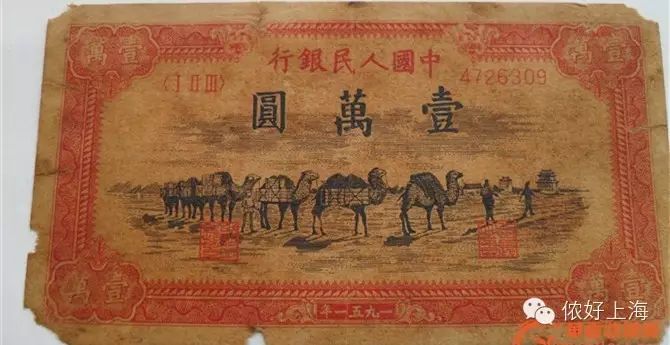 萬壹
壹萬
行銀民人國中
〈I II III〉
4726309
圓萬壹
萬壹
壹萬
年一五九一
侬好上海